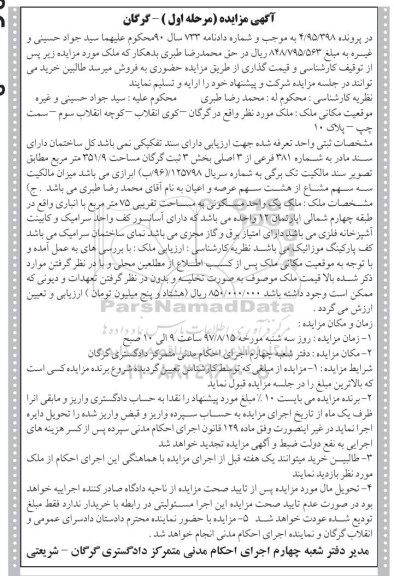 آگهی مزایده (مرحله اول) - گرگان
در پرونده ۴/۹۵/۳۹۸ به موجب و شماره دادنامه ۷۳۳ سال ۹۰محکوم علیهما سید جواد حسینی و
غیره به مبلغ ۸۴۸/۷۹۵/۵۶۳ ریال در حق محمدرضا طبری بدهکار که ملک مورد مزایده زیر پس
از توقیف کارشناسی و قیمت گذاری از طریق مزایده حضوری به فروش میرسد طالبین خرید می
توانند در جلسه مزایده شرکت و پیشنهاد خود را ارایه و تسلیم نمایند
نظریه کارشناسی : محکوم له : محمد رضا طبری محکوم علیه : سید جواد حسینی و غیره
موقعیت مکانی ملک : ملک مورد نظر واقع در گرگان –کوی انقلاب –کوچه انقلاب سوم – سمت
چپ – پلاک ۱۰
مشخصات ثبتی واحد تعرفه شده جهت ارزیابی دارای سند تفکیکی نمی باشد کل ساختمان دارای
سند مادر به شماره ۳۸۱ فرعی از ۳ اصلی بخش ۳ ثبت گرگان مساحت ۳۵۱/۹ متر مربع مطابق
تصویر سند مالکیت تک برگی به شماره سریال ۱۲۵۷۹۸(۹۶/ب) ابرازی می باشد میزان مالکیت
سه سهم مشاع از هشت سهم عرصه و اعیان به نام آقای محمد رضا طبری می باشد . ج)
مشخصات ملک : ملک یک واحد مسکونی به مساحت تقریبی ۷۵ متر مربع با انباری واقع در
طبقه چهارم شمالی آپارتمان ۱۲ واحده می باشد که دارای آسانسور کف واحد سرامیک و کابینت
آشپزخانه فلزی می باشد دارای امتیاز برق و گاز مجزی می باشد نمای ساختمان سرامیک می باشد
کف پارکینگ موزائیک می باشد نظریه کارشناسی : ارزیابی ملک : با بررسی های به عمل آمده و
با توجه به موقعیت مکانی ملک پس از کسب اطلاع از مطلعین محلی و با در نظر گرفتن موارد
ذکر شده بالا قیمت ملک موصوف به صورت تخلیه و بدون در نظر گرفتن تعهدات و دیونی که
ممکن است وجود داشته باشد ۸۵۰/۰۰۰/۰۰۰ ریال (هشتاد و پنج میلیون تومان ) ارزیابی و تعیین
ارزش می گردد .
زمان و مکان مزایده :
۱- زمان مزایده : روز سه شنبه مورخه ۹۷/۸/۱۵ ساعت ۹ الی ۱۰ صبح
۲- مکان مزایده : دفتر شعبه چهارم اجرای احکام مدنی متمرکز دادگستری گرگان
شرایط مزایده : ۱- مزایده از مبلغی که توسط کارشناس تعیین گردیده شروع برنده مزایده کسی است
که بالاترین مبلغ را در جلسه مزایده قبول نماید
۲- برنده مزایده می بایست ۱۰ ٪ مبلغ مورد پیشنهاد را نقدا به حساب دادگستری واریز و مابقی انرا
ظرف یک ماه از تاریخ اجرای مزایده به حساب سپرده واریز و قبض واریز شده را تحویل دایره
اجرا نماید در غیر اینصورت وفق ماده ۱۲۹ قانون اجرای احکام مدنی سپرده پس از کسر هزینه های
اجرایی به نفع دولت ضبط و آگهی مزایده تجدید خواهد شد
۳- طالبین خرید میتوانند یک هفته قبل از اجرای مزایده با هماهنگی این اجرای احکام از ملک
مورد نظر بازدید نمایند
۴- تحویل مال مورد مزایده پس از تایید صحت مزایده از ناحیه دادگاه صادر کننده اجراییه خواهد
بود در صورت عدم تایید صحت مزایده این اجرا مسئولیتی در رابطه با خریدار ندارد فقط مبلغ
تودیع شده عودت خواهد شد ۵- مزایده با حضور نماینده محترم دادستان دادسرای عمومی و
انقلاب گرگان و نماینده اجرای احکام مدنی انجام خواهد شد .
مدیر دفتر شعبه چهارم اجرای احکام مدنی متمرکز دادگستری گرگان – شریعتی
ParsNamadData